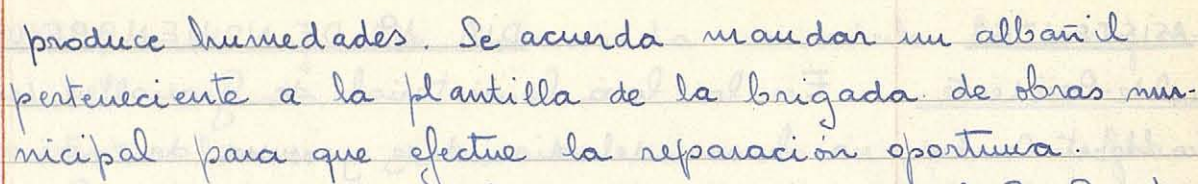 produce humedades. Se acuerda mandar un albañil
perteneciente a la plantilla de la brigada de obras mu-
nicipal para que efectue la reparación oportuna.